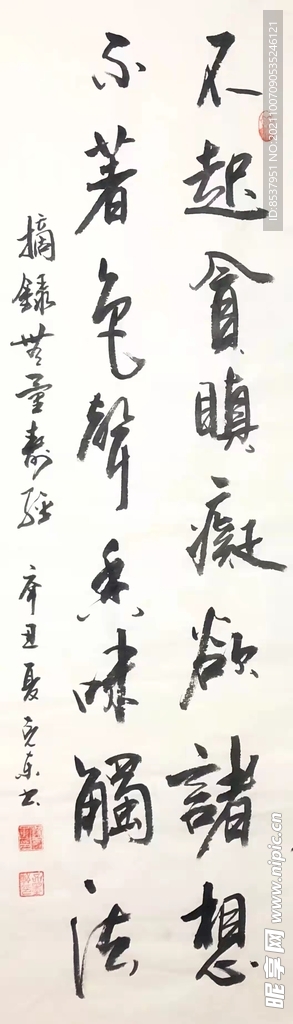 不起貪瞋癡欲諸想
不著色聲香味觸法
摘錄無量壽經 辛丑夏克東书
ID:8537951 NO:20211007090535246121
昵享网 www.nipic.cn